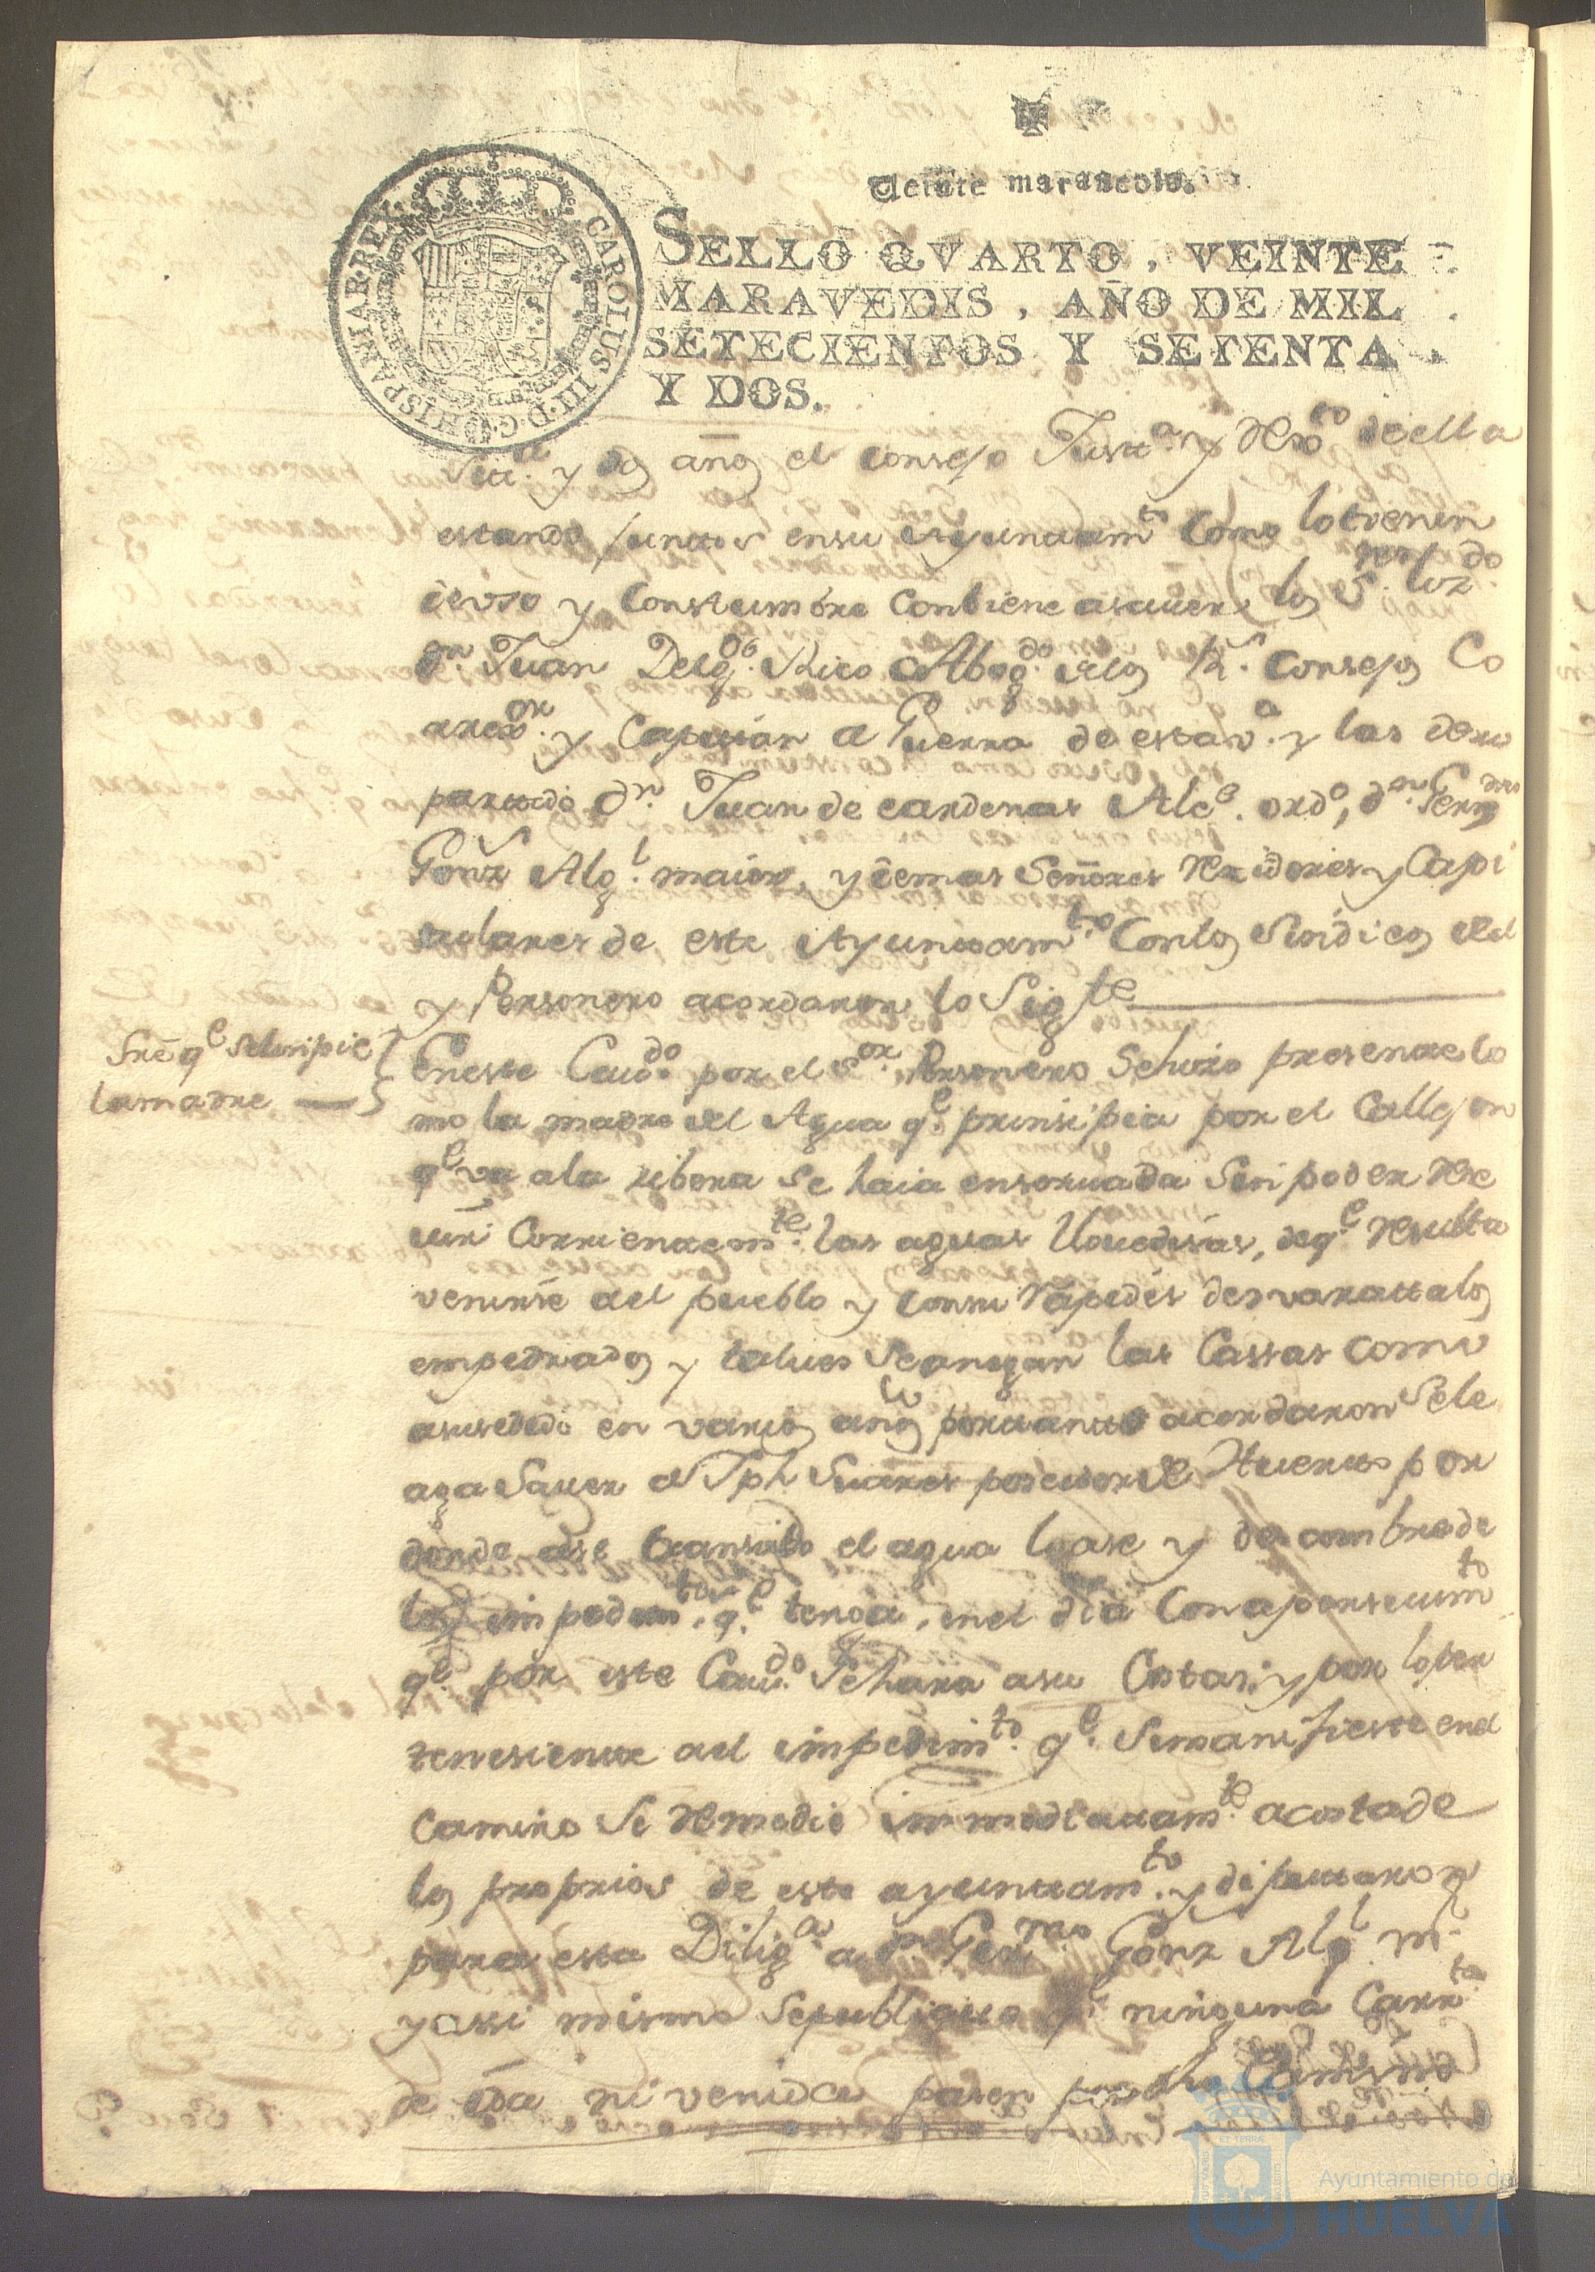 Veinte maravedis.
SELLO QVARTO, VEINTE
MARAVEDIS, AÑO DE MIL
SETECIENTOS Y SETENTA
Y DOS.
CAROLUS III D.G. HISPANIAR REX
y dos años el consejo Justª. y Rexto. de ella
estando juntos en su ayuntamto. como lo tienen
de uso y Constumbre combiene asauer los Sres. lizdo.
Dn. Juan Delgdo. Rico Abogdo. de los Rs. Consejos Co
rrexor. y Capitan a Guerra de esta vª. y las de su
partido Dn. Juan de Cardenas Alce. ordo, Dn. 
Gonz Algl. maior, y demas Señores Rexidores y Capi
tulares de este Ayuntamto. Con los Sindicos del
y Personero acordaron lo Sigte
Sre qe se limpie
la madre
En este Caudo. por el Sor. Personero Se hizo presente co
mo la madre del Agua qe. prinsipia por el Callejon
qe va a la ribera se haia ensoruada sin poder Rese
uir Corrientemte. las aguas llouedisas, de qe Resulta
venirse al pueblo y con su Rapides desvaratta los
empedrados y talues Se anegan las Cassas como
a susedido en varios años por tanto acordaron Se le
aga Sauer a Jph Suares poseedor de Huerto por
donde ase transito el agua la ase y descombre de
los impedimtos. qe. tenga, en el dia Con apersiuimto
qe. por este Caudo. Se hara a su Costa; y por lo per
tenesiente al impedimto. qe. Se manifieste en el
Camino Se Remedie immediatamte. a costa de
los proprios de este ayuntamto. y diputaron
para esta Diliga. a Dn Germo Gonz Algl. mr
y assi mismo Se publique qe ninguna Carrta
de ida ni venida pasen por dho Camino
Ayuntamiento de
HUELVA